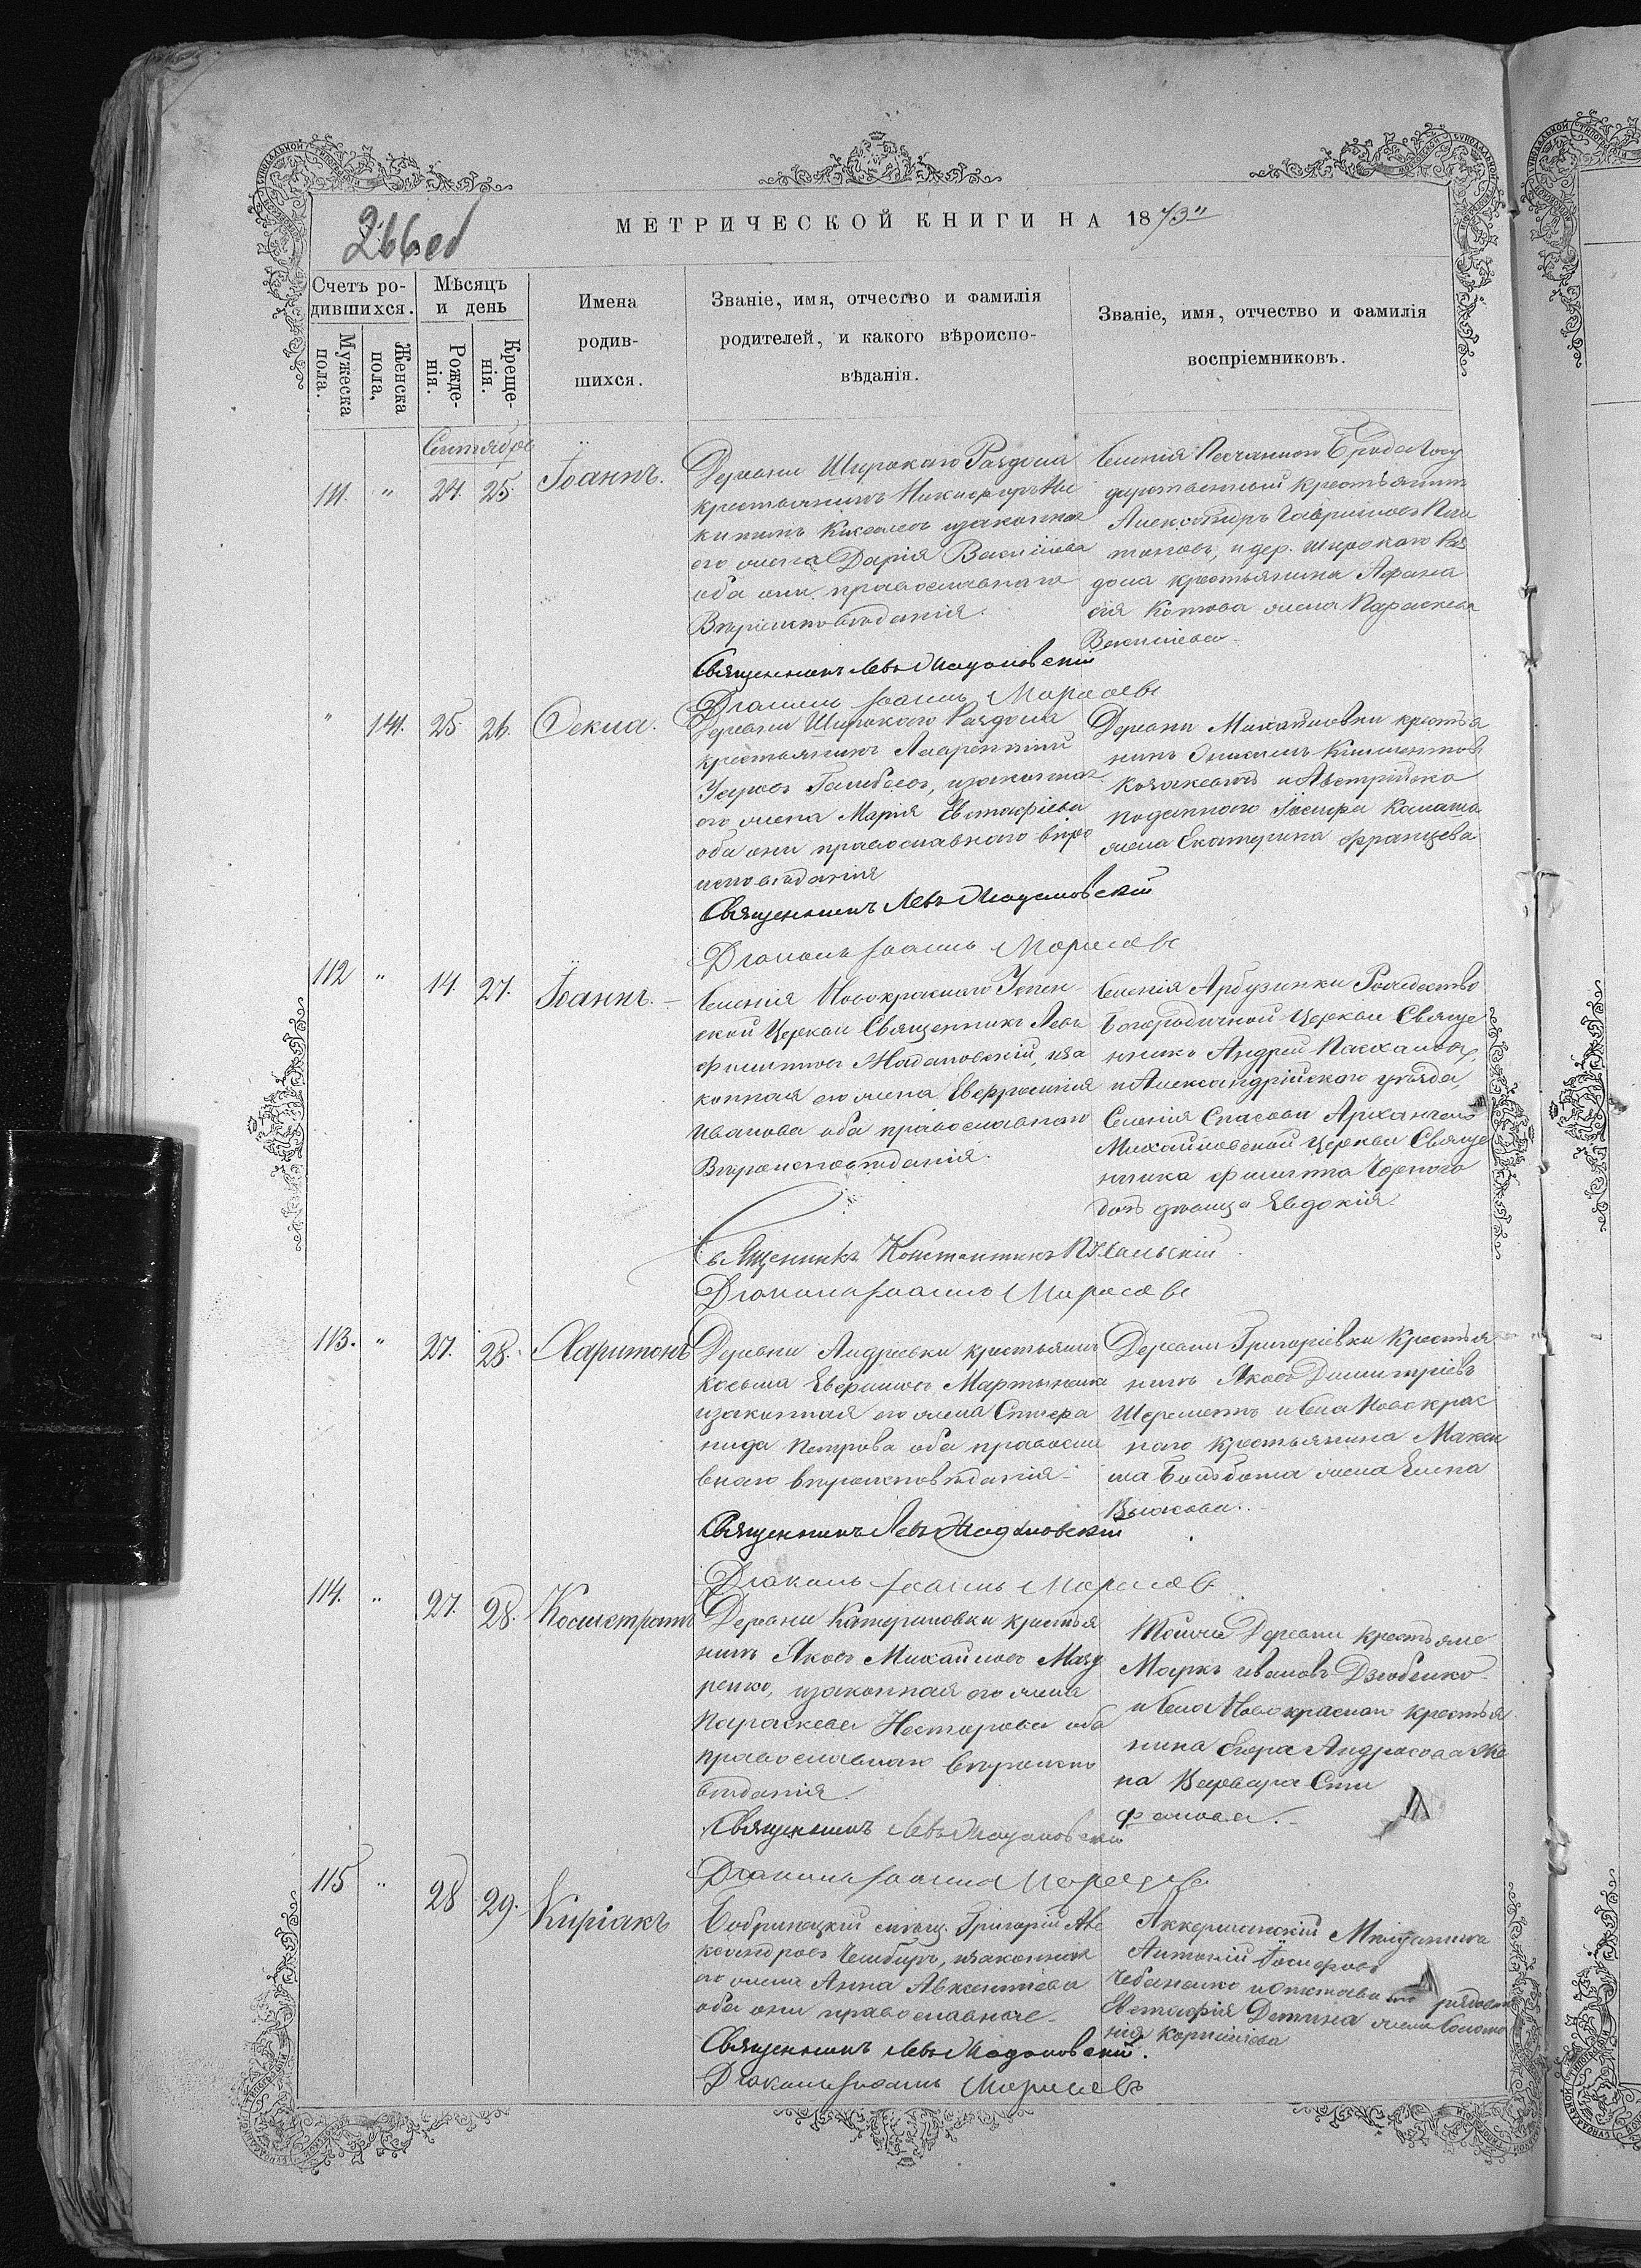 266 об
МЕТРИЧЕСКОЙ КНИГИ НА 1873
Счетъ ро-
дившихся.
Мужеска
пола.
Женска
пола,
Мѣсяцъ
и день
Рожде-
нія.
Креще-
нія.
Имена
родив-
шихся.
Званіе, имя, отчество и фамилія
родителей, и какого вѣроиспо-
вѣданія.
Званіе, имя, отчество и фамилія
воспріемниковъ.
Сентябрь
111. " 24. 25. Іоаннъ.
Деревни Широкаго Раздола
крестьянинъ Никифоръ Ни
китинъ изаконная
его жена Дарія Васильева
оба они православнаго
Вѣроисповѣданія.
Священникъ Левъ Жадановскій
Діаконъ Іоаннъ
Селенія Песчаного Брода Госу
дарственный крестьянинъ
Александръ Гавриловъ Пла
тоновъ, и дер. Широкаго Раз
дола крестьянина Афана
сія Котова жена Параскева
Васильева
" 141. 25. 26. Фекла.
Деревни Широкаго Раздола
крестьянинъ Лаврентій
изаконная
его жена Марія Евстафіева
оба они православнаго вѣро
исповѣданія
Священникъ Левъ Жадановскій
Діаконъ Іоаннъ
Деревни Михайловки крестья
нинъ Климентовъ
и Австрійско
подданного Іосифа
жена Екатерина Францева
112 " 14. 27. Іоаннъ.
Селенія Новокраснаго Успен
ской Церкви Священникъ Левъ
Филипповъ Жадановскій, иза
конная его жена Евфросинія
Иванова оба православнаго
Вѣроисповѣданія.
Священникъ Константинъ
Діаконъ Іоаннъ
Селенія Арбузинки Рождество
Богородичной Церкви Свяще
нникъ Андрей
и Александрійскаго уѣзда,
Селенія Спасова Архангело
Михайловской Церкви Свяще
нника Филиппа Чорного
дочь дѣвица Евдокія.
113. " 27. 28. Харитонъ
Деревни Андреевки крестьянинъ
Косьма Мартыненко
изаконная его жена Стефа
нида Петрова оба правосла
внаго вѣроисповѣданія
Священникъ Левъ Жадановскій
Діаконъ Іоаннъ
Деревни Григоріевки Крестья
нинъ Яковъ Димитріевъ
Шереметъ и села Новокрас
наго крестьянина Макси
ма жена Елена
114. " 27. 28. Калистратъ
Деревни Катериновки крестья
нинъ Яковъ Михайловъ Маза
ренко, изаконная его жена
Параскева Несторова оба
православнаго вѣроиспо
вѣданія.
Священникъ Левъ Жадановскій
Діаконъ Іоаннъ
Тойже Деревни крестьяне
Маркъ Ивановъ Дзюбенко
и села Новокраснаго крестья
нина Егора Андросова же
на Варвара Сте
фанова.
115 " 28 29. Киріакъ
Бобринецкій мѣщ. Григорій Але
ксандровъ Чембиръ, изаконная
его жена Анна Авксентіева
оба они православные
Священникъ Левъ Жадановскій.
Діаконъ Іоаннъ
Аккерманскій Мѣщанинъ
Антоній Іосифовъ
Чебаненко и отставного рядового
Евстафія Детина жена Соломо
нія Корниліева